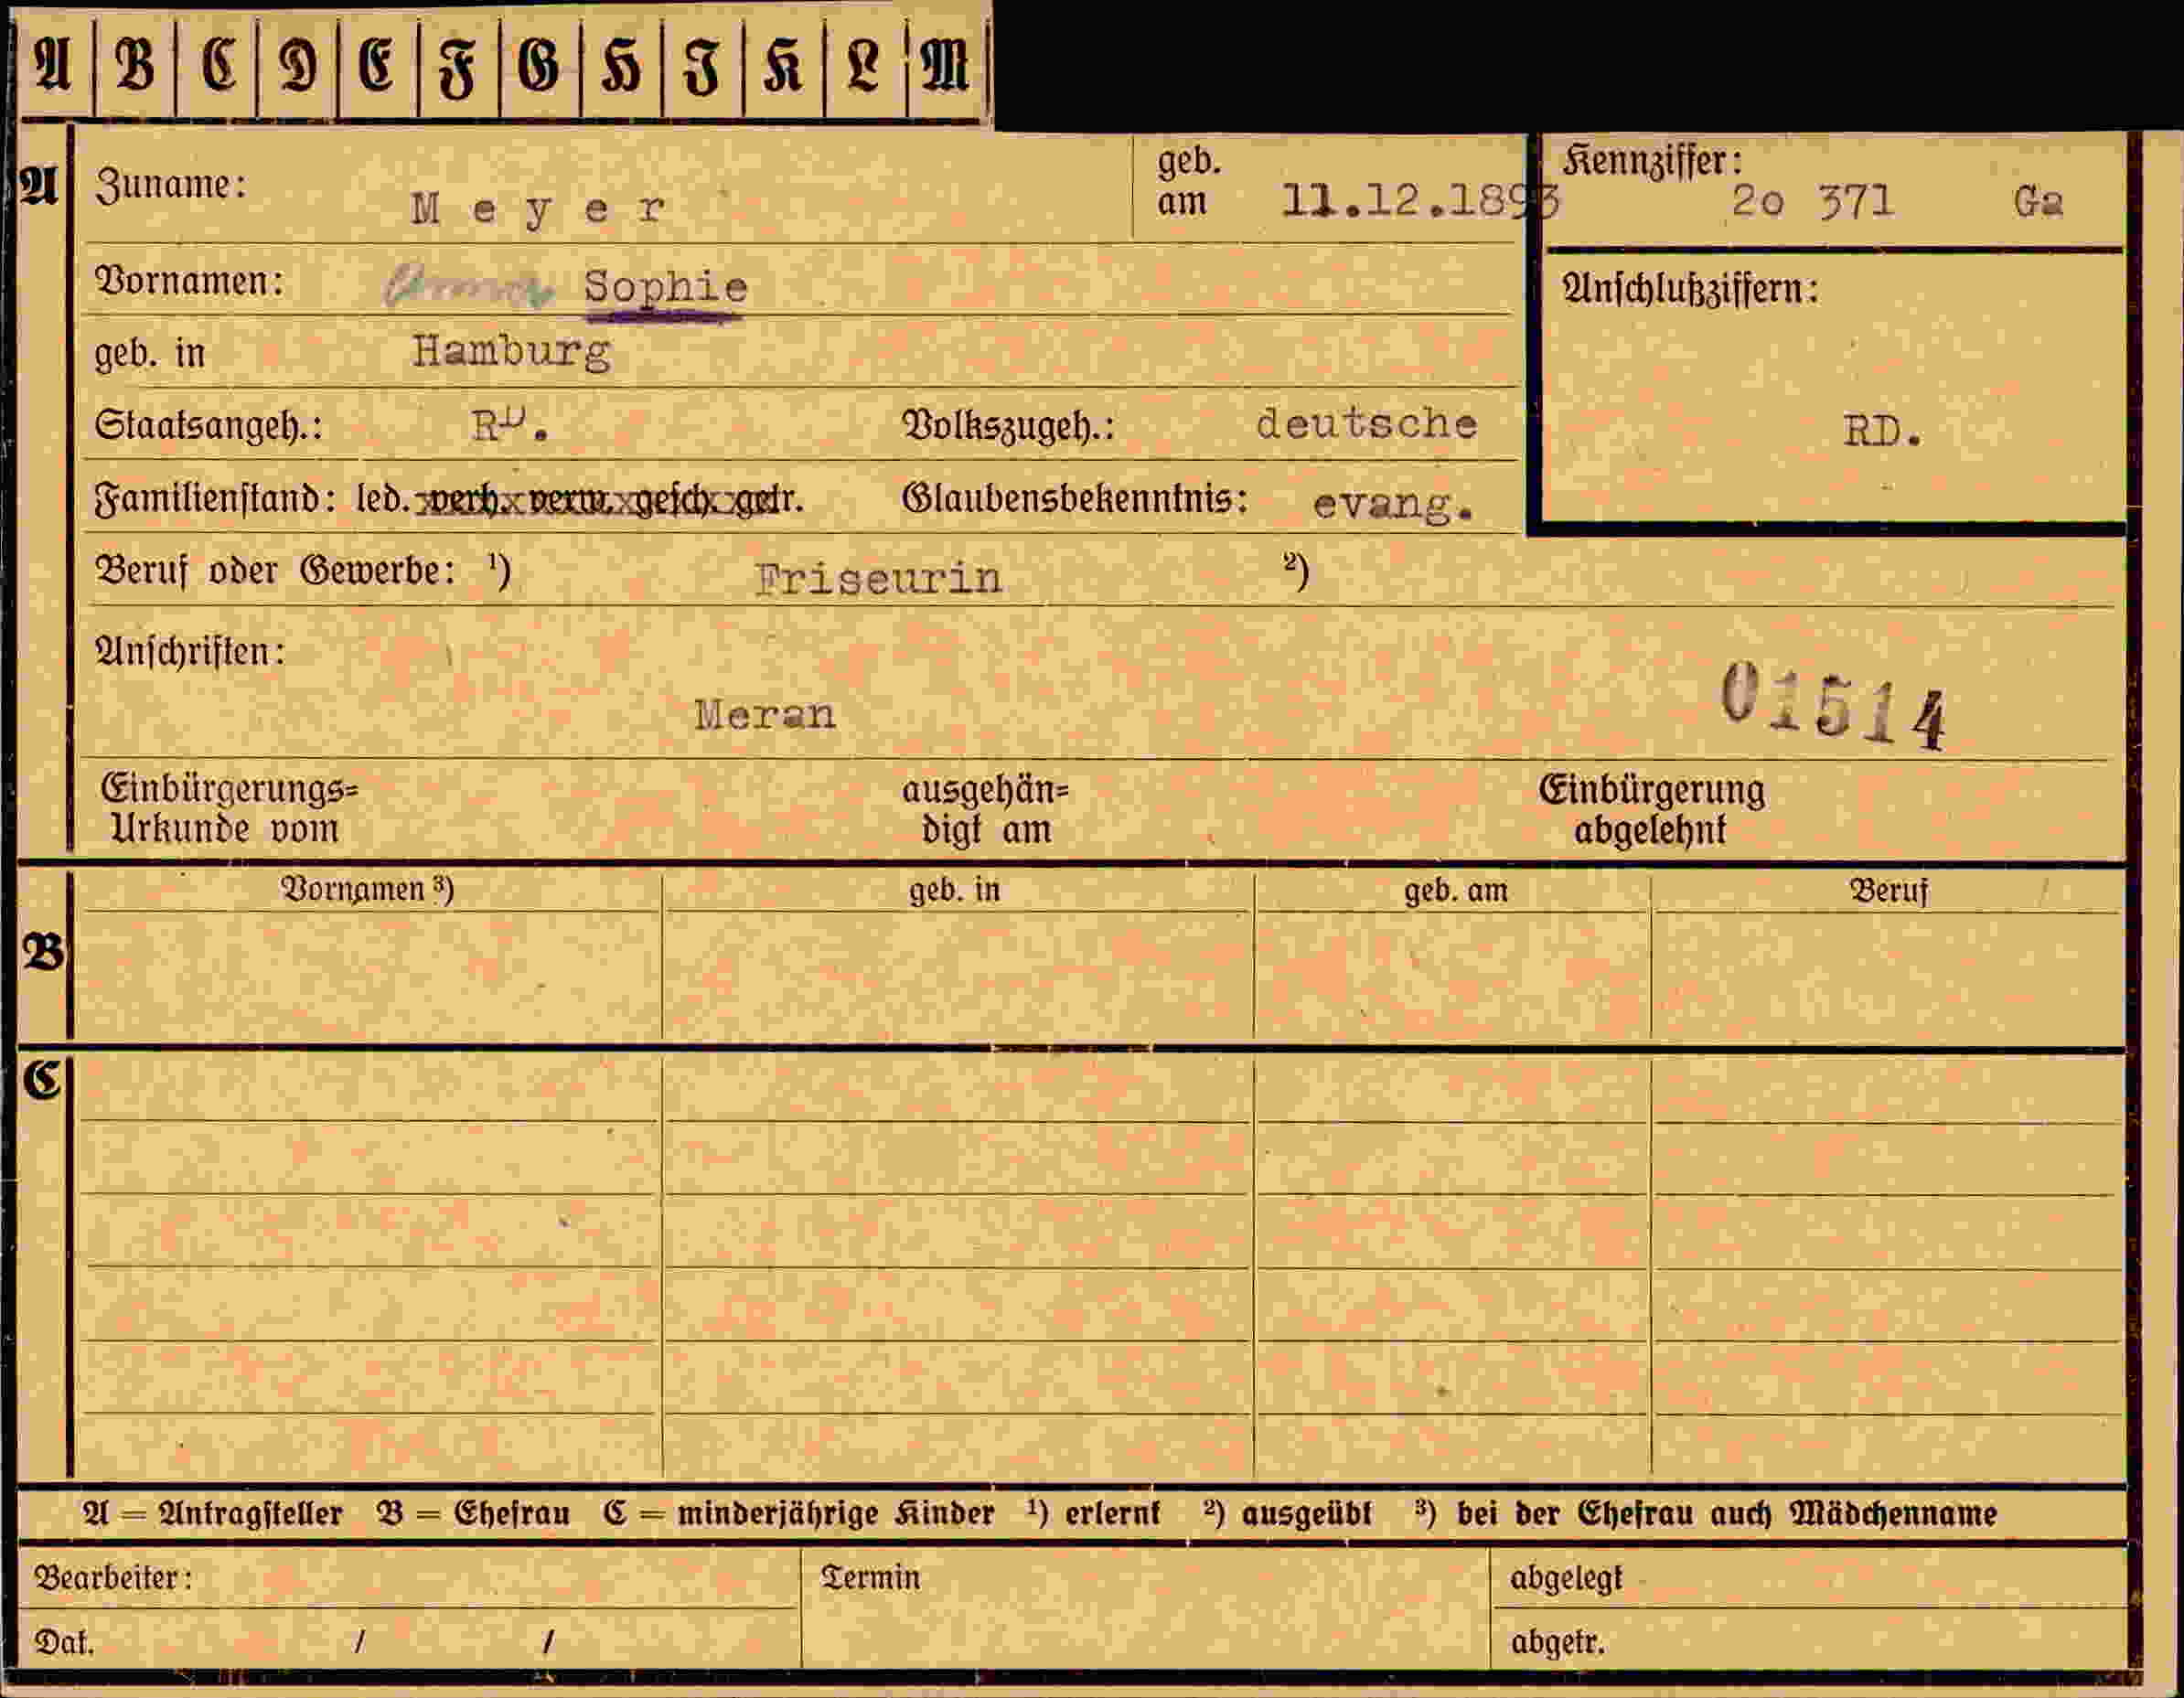 A B C D E F G H I K L M
A Zuname: Meyer geb. am 11.12.1893 Kennziffer: 2o 371 Ga
Vornamen: Sophie Anschlußziffern:
geb. in Hamburg
Staatsangeh.: RD. Volkszugeh.: deutsche RD.
Familienstand: led. verh. verw. gesch. getr. Glaubensbekenntnis: evang.
Beruf oder Gewerbe: ¹) Friseurin ²)
Anschriften:
Meran 01514
Einbürgerungs=
Urkunde vom
ausgehän=
digt am
Einbürgerung
abgelehnt
B Vornamen ³) geb. in geb. am Beruf
C
A = Antragsteller B = Ehefrau C = minderjährige Kinder ¹) erlernt ²) ausgeübt ³) bei der Ehefrau auch Mädchenname
Bearbeiter: Termin abgelegt
Dat. / / abgetr.